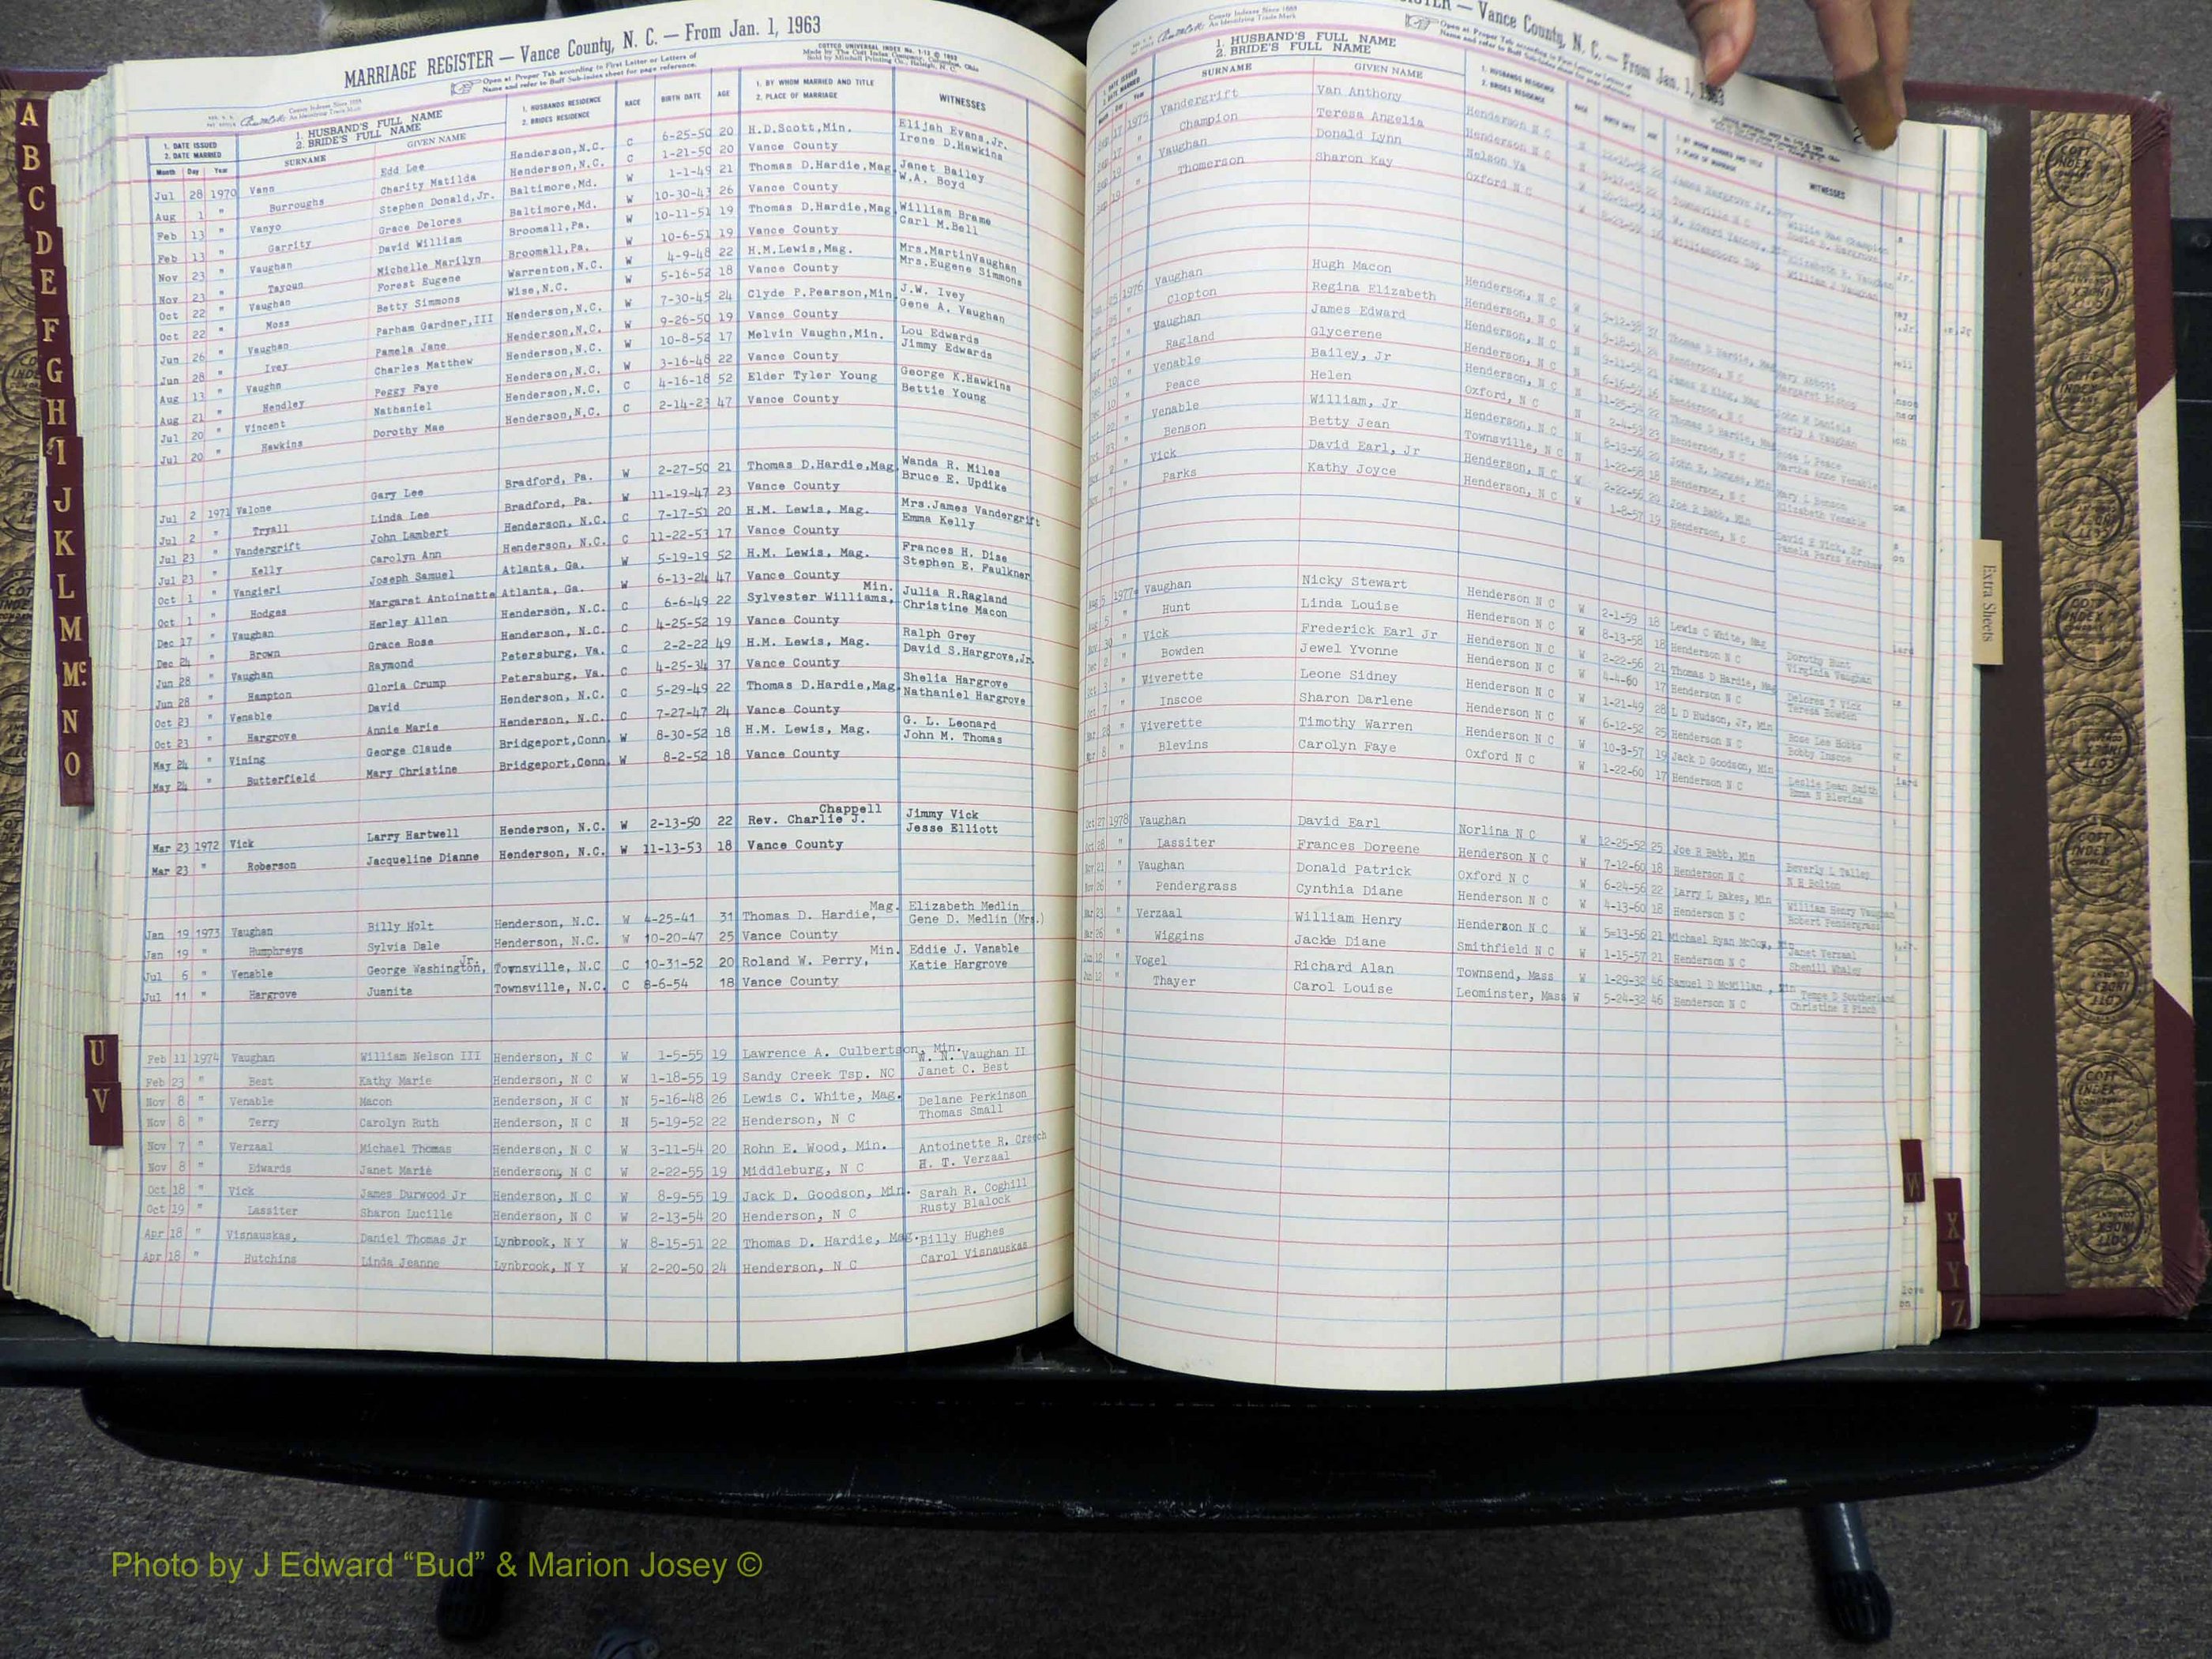 MARRIAGE REGISTER — Vance County, N. C. — From Jan. 1, 1963
Open at Proper Tab according to First Letter or Letters of
Name and refer to Buff Sub-index sheet for page reference.
COTTCO UNIVERSAL INDEX
1. DATE ISSUED
2. DATE MARRIED
Month Day Year
1. HUSBAND'S FULL NAME
2. BRIDE'S FULL NAME
SURNAME GIVEN NAME
1. HUSBANDS RESIDENCE
2. BRIDES RESIDENCE
RACE BIRTH DATE AGE
1. BY WHOM MARRIED AND TITLE
2. PLACE OF MARRIAGE
WITNESSES
Jul 28 1970 Vann Edd Lee Henderson,N.C. C 6-25-50 20 H.D.Scott,Min. Elijah Evans,Jr.
Aug 1 " Burroughs Charity Matilda Henderson,N.C. C 1-21-50 20 Vance County Irene D.Hawkins
Feb 13 " Vanyo Stephen Donald,Jr. Baltimore,Md. W 1-1-49 21 Thomas D.Hardie,Mag. Janet Bailey
Feb 13 " Garrity Grace Delores Baltimore,Md. W 10-30-43 26 Vance County W.A. Boyd
Nov 23 " Vaughan David William Broomall,Pa. W 10-11-51 19 Thomas D.Hardie,Mag. William Brame
Nov 23 " Tayoun Michelle Marilyn Broomall,Pa. W 10-6-51 19 Vance County Carl M.Bell
Oct 22 " Vaughan Forest Eugene Warrenton,N.C. W 4-9-48 22 H.M.Lewis,Mag. Mrs.MartinVaughan
Oct 22 " Moss Betty Simmons Wise,N.C. W 5-16-52 18 Vance County Mrs.Eugene Simmons
Jun 26 " Vaughan Parham Gardner,III Henderson,N.C. W 7-30-45 24 Clyde P.Pearson,Min. J.W. Ivey
Jun 28 " Ivey Pamela Jane Henderson,N.C. W 9-26-50 19 Vance County Gene A. Vaughan
Aug 13 " Vaughn Charles Matthew Henderson,N.C. W 10-8-52 17 Melvin Vaughn,Min. Lou Edwards
Aug 21 " Hendley Peggy Faye Henderson,N.C. W 3-16-48 22 Vance County Jimmy Edwards
Jul 20 " Vincent Nathaniel Henderson,N.C. C 4-16-18 52 Elder Tyler Young George K.Hawkins
Jul 20 " Hawkins Dorothy Mae Henderson,N.C. C 2-14-23 47 Vance County Bettie Young
Jul 2 1971 Valone Gary Lee Bradford, Pa. W 2-27-50 21 Thomas D.Hardie,Mag. Wanda R. Miles
Jul 2 " Tryall Linda Lee Bradford, Pa. W 11-19-47 23 Vance County Bruce E. Updike
Jul 23 " Vandergrift John Lambert Henderson, N.C. C 7-17-51 20 H.M. Lewis, Mag. Mrs.James Vandergrift
Jul 23 " Kelly Carolyn Ann Henderson, N.C. C 11-22-53 17 Vance County Emma Kelly
Oct 1 " Vangieri Joseph Samuel Atlanta, Ga. W 5-19-19 52 H.M. Lewis, Mag. Frances H. Dise
Oct 1 " Hodges Margaret Antoinette Atlanta, Ga. W 6-13-24 47 Vance County Stephen E. Faulkner
Dec 17 " Vaughan Harley Allen Henderson, N.C. C 6-6-49 22 Sylvester Williams, Min. Julia R.Ragland
Dec 24 " Brown Grace Rose Henderson, N.C. C 4-25-52 19 Vance County Christine Macon
Jun 28 " Vaughan Raymond Petersburg, Va. C 2-2-22 49 H.M. Lewis, Mag. Ralph Grey
Jun 28 " Hampton Gloria Crump Petersburg, Va. C 4-25-34 37 Vance County David S.Hargrove,Jr.
Oct 23 " Venable David Henderson, N.C. C 5-29-49 22 Thomas D.Hardie,Mag. Shelia Hargrove
Oct 23 " Hargrove Annie Marie Henderson, N.C. C 7-27-47 24 Vance County Nathaniel Hargrove
May 24 " Vining George Claude Bridgeport,Conn. W 8-30-52 18 H.M. Lewis, Mag. G. L. Leonard
May 24 " Butterfield Mary Christine Bridgeport,Conn. W 8-2-52 18 Vance County John M. Thomas
Mar 23 1972 Vick Larry Hartwell Henderson, N.C. W 2-13-50 22 Rev. Charlie J. Chappell Jimmy Vick
Mar 23 " Roberson Jacqueline Dianne Henderson, N.C. W 11-13-53 18 Vance County Jesse Elliott
Jan 19 1973 Vaughan Billy Holt Henderson, N.C. W 4-25-41 31 Thomas D. Hardie, Mag. Elizabeth Medlin
Jan 19 " Humphreys Sylvia Dale Henderson, N.C. W 10-20-47 25 Vance County Gene D. Medlin (Mrs.)
Jul 6 " Venable George Washington, Jr. Townsville, N.C C 10-31-52 20 Roland W. Perry, Min. Eddie J. Vanable
Jul 11 " Hargrove Juanita Townsville, N.C. C 8-6-54 18 Vance County Katie Hargrove
Feb 11 1974 Vaughan William Nelson III Henderson, N C W 1-5-55 19 Lawrence A. Culbertson, Min. W. N. Vaughan II
Feb 23 " Best Kathy Marie Henderson, N C W 1-18-55 19 Sandy Creek Tsp. NC Janet C. Best
Nov 8 " Venable Macon Henderson, N C N 5-16-48 26 Lewis C. White, Mag. Delane Perkinson
Nov 8 " Terry Carolyn Ruth Henderson, N C N 5-19-52 22 Henderson, N C Thomas Small
Nov 7 " Verzaal Michael Thomas Henderson, N C W 3-11-54 20 Rohn E. Wood, Min. Antoinette R. Creech
Nov 8 " Edwards Janet Marie Henderson, N C W 2-22-55 19 Middleburg, N C H. T. Verzaal
Oct 18 " Vick James Durwood Jr Henderson, N C W 8-9-55 19 Jack D. Goodson, Min. Sarah R. Coghill
Oct 19 " Lassiter Sharon Lucille Henderson, N C W 2-13-54 20 Henderson, N C Rusty Blalock
Apr 18 " Visnauskas, Daniel Thomas Jr Lynbrook, N Y W 8-15-51 22 Thomas D. Hardie, Mag. Billy Hughes
Apr 18 " Hutchins Linda Jeanne Lynbrook, N Y W 2-20-50 24 Henderson, N C Carol Visnauskas
— Vance County, N. C. — From Jan. 1, 1963
1. HUSBAND'S FULL NAME
2. BRIDE'S FULL NAME
SURNAME GIVEN NAME
1. HUSBANDS RESIDENCE
2. BRIDES RESIDENCE
WITNESSES
17 1975 Vandergrift Van Anthony Henderson N C
Champion Teresa Angelia Henderson N C Townsville N C
19 " Vaughan Donald Lynn Nelson Va
19 " Thomerson Sharon Kay Oxford N C Williamsboro Tsp
1976 Vaughan Hugh Macon Henderson, N C W Thomas D Hardie, Mag Mary Abbott
Clopton Regina Elizabeth Henderson, N C W Henderson, N C Margaret Bishop
Vaughan James Edward Henderson, N C N
Ragland Glycerene Henderson, N C N Henderson, N C
10 " Venable Bailey, Jr Henderson, N C N Thomas D Hardie, Mag
10 " Peace Helen Oxford, N C N 2-4-53 23 Henderson, N C Martha Anne Venable
Venable William, Jr Henderson, N C N 8-19-56 20 Mary L Benson
Benson Betty Jean Townsville, N C N 1-22-58 18 Henderson, N C Elizabeth Venable
Vick David Earl, Jr Henderson, N C W 2-22-56 20 Joe R Babb, Min David E Vick, Sr
Parks Kathy Joyce Henderson, N C W 1-8-57 19 Henderson, N C Pamela Parks Kershaw
1977 Vaughan Nicky Stewart Henderson N C W 2-1-59 18 Lewis C White, Mag Dorothy Hunt
Hunt Linda Louise Henderson N C W 8-13-58 18 Henderson N C Virginia Vaughan
Vick Frederick Earl Jr Henderson N C W 2-22-56 21 Thomas D Hardie, Mag Delores T Vick
Bowden Jewel Yvonne Henderson N C W 4-4-60 17 Henderson N C Teresa Bowden
Viverette Leone Sidney Henderson N C W 1-21-49 28 L D Hudson, Jr, Min Rose Lee Hobbs
Inscoe Sharon Darlene Henderson N C W 6-12-52 25 Henderson N C Bobby Inscoe
Viverette Timothy Warren Henderson N C W 10-3-57 19 Jack D Goodson, Min Leslie Dean Smith
Blevins Carolyn Faye Oxford N C W 1-22-60 17 Henderson N C Emma H Blevins
Oct 27 1978 Vaughan David Earl Norlina N C W 12-25-52 25 Joe R Babb, Min Beverly L Talley
Oct 28 " Lassiter Frances Doreene Henderson N C W 7-12-60 18 Henderson N C N H Bolton
Nov 21 " Vaughan Donald Patrick Oxford N C W 6-24-56 22 Larry L Eakes, Min William Henry Vaughan
Nov 26 " Pendergrass Cynthia Diane Henderson N C W 4-13-60 18 Henderson N C Robert Pendergrass
Mar 23 " Verzaal William Henry Henderson N C W 5-13-56 21 Michael Ryan McCoy, Min Janet Verzaal
Mar 26 " Wiggins Jackie Diane Smithfield N C W 1-15-57 21 Henderson N C Sherill Whaley
Jun 12 " Vogel Richard Alan Townsend, Mass W 1-29-32 46 Samuel D McMillan, Min Tempe D Southerland
Jun 12 " Thayer Carol Louise Leominster, Mass W 5-24-32 46 Henderson N C Christine E Finch
A
B
C
D
E
F
G
H
I
J
K
L
M
Mc
N
O
U
V
W
X
Y
Z
Extra Sheets
COTT INDEX COMPANY
Photo by J Edward “Bud” & Marion Josey ©